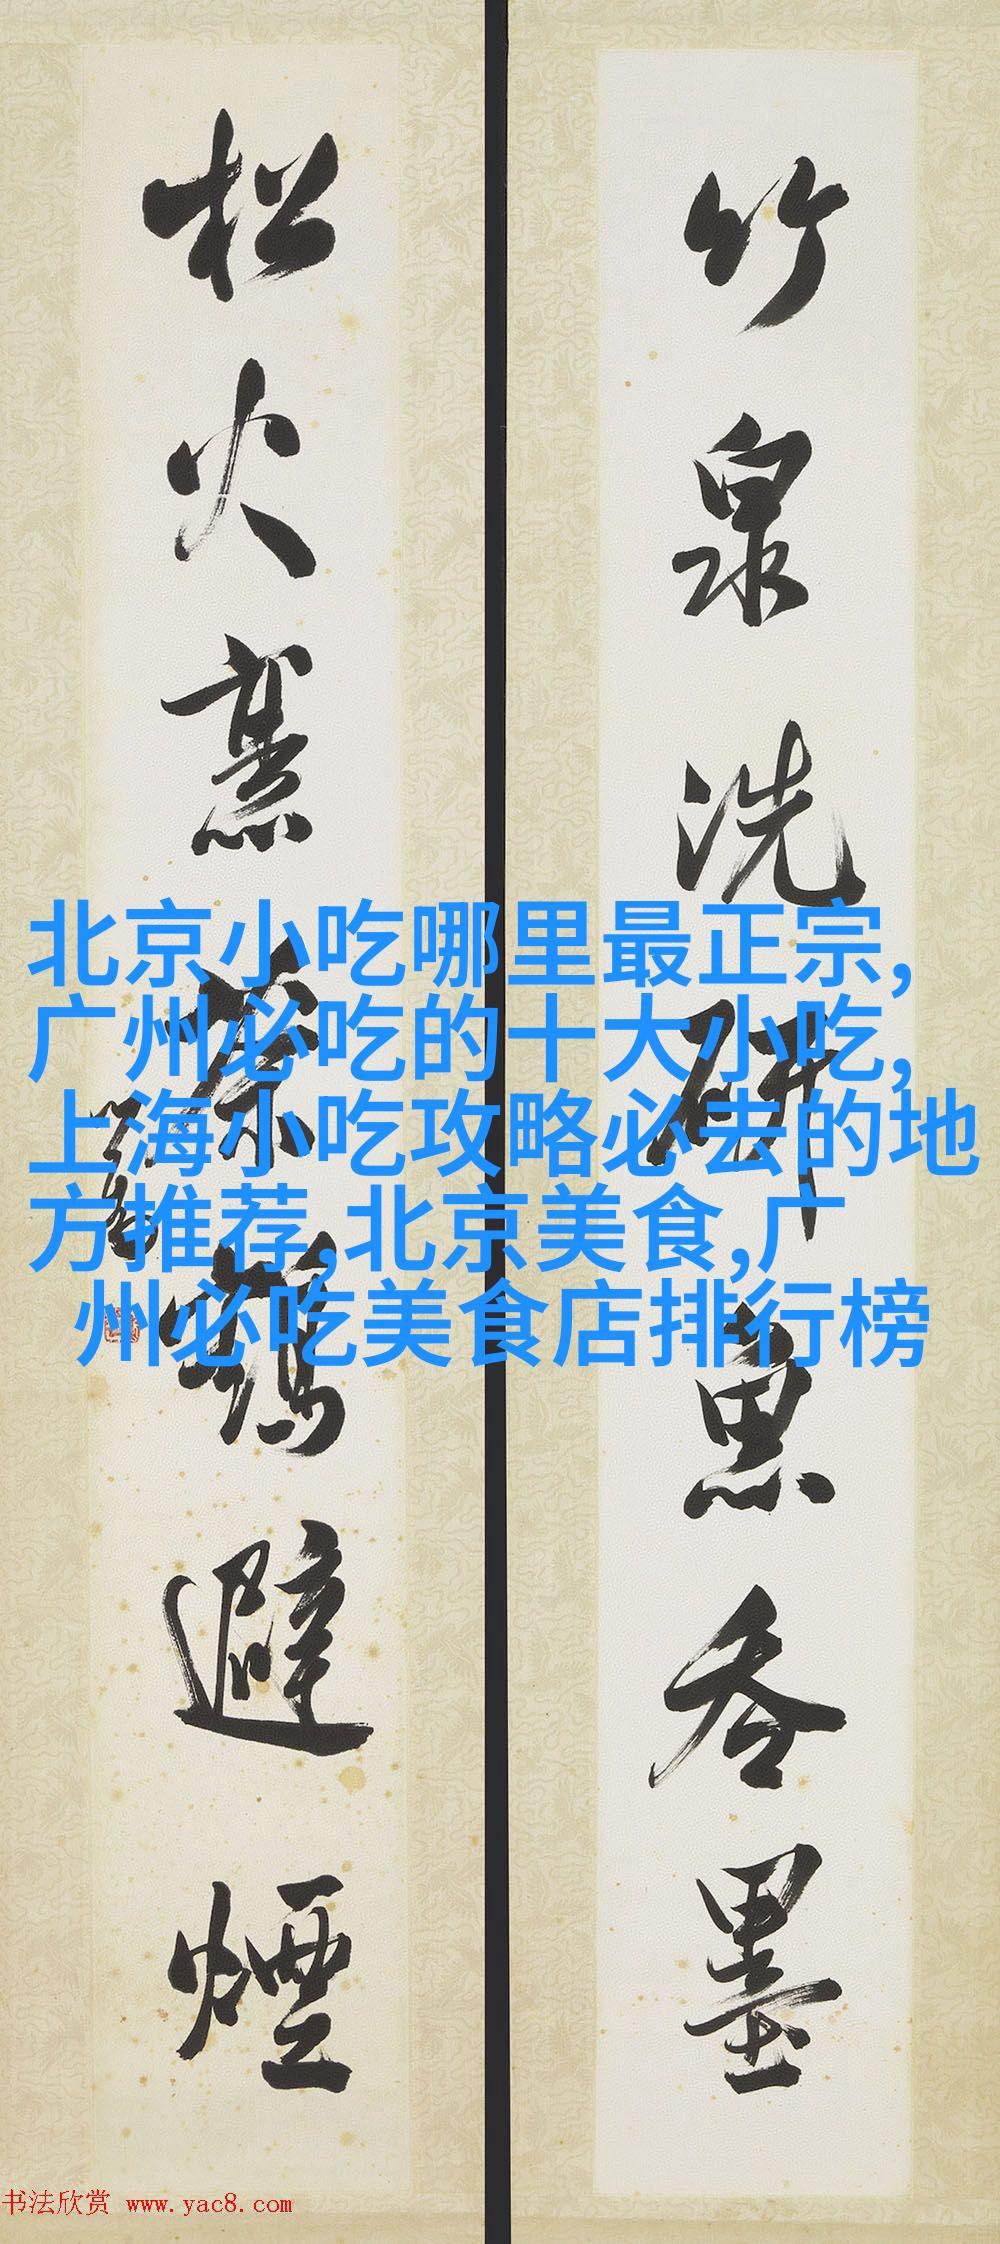 竹泉洗研魚吞墨
松火烹茶鶴避煙
北京小吃哪里最正宗,
广州必吃的十大小吃,
上海小吃攻略必去的地
方推荐,北京美食,广
州必吃美食店排行榜
书法欣赏 www.yac8.com